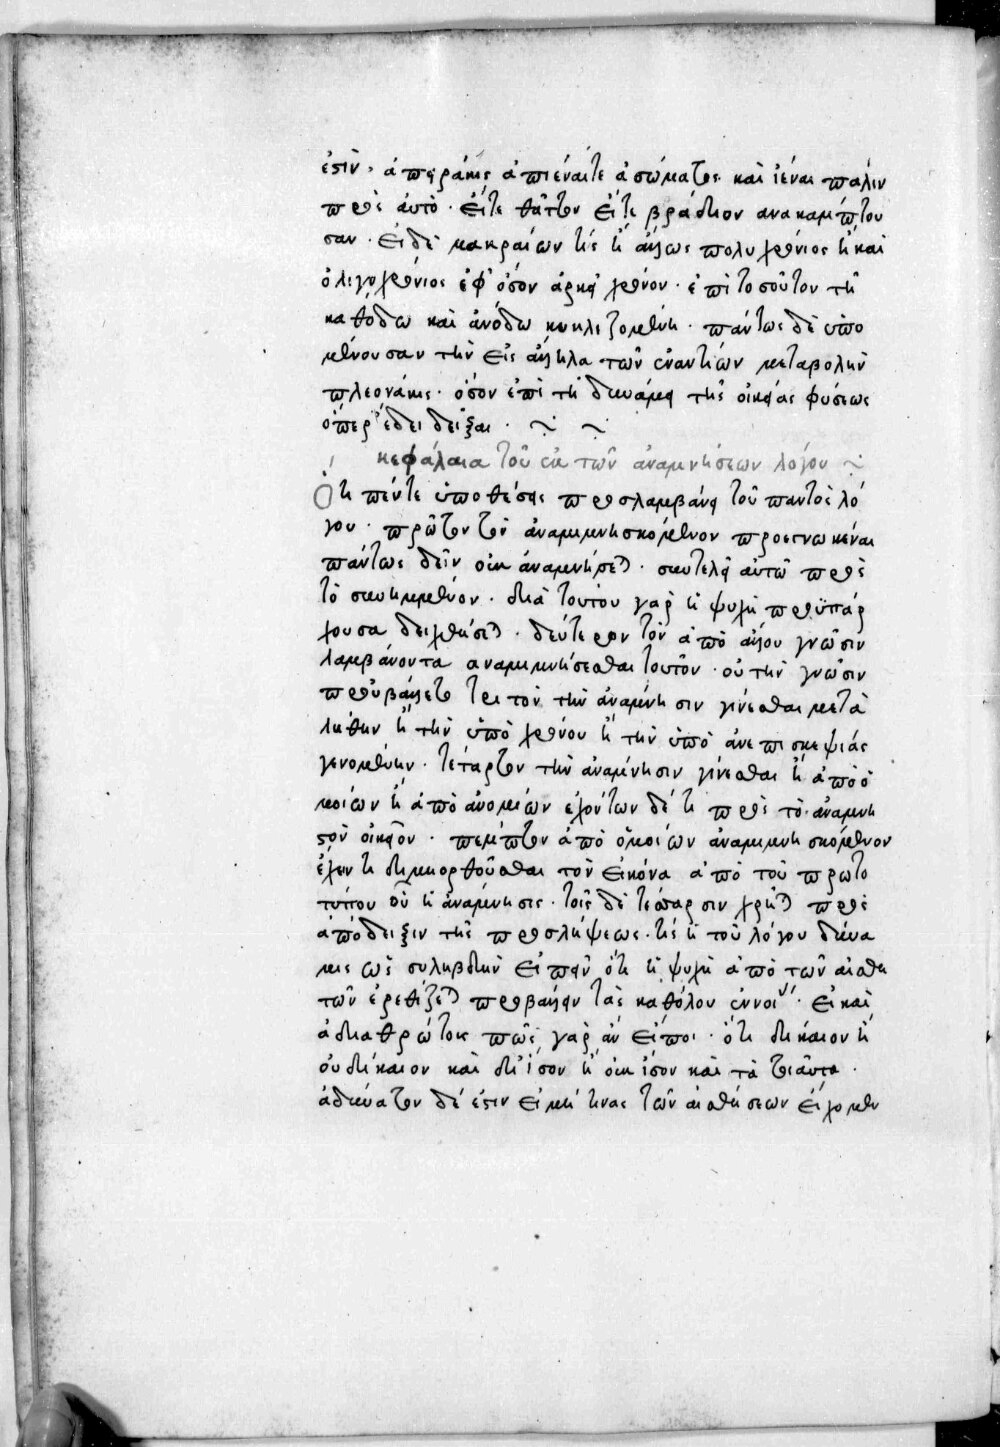 ἐστὶν· ἀπειράκις ἀπιέναι τε ἀσώματος καὶ ἰέναι πάλιν
πρὸς αὐτὸ· εἴτε θᾶττον εἴτε βράδιον ἀνακαμπτου
σαν· εἰ δὲ μακραίων τίς ἢ ἄλλως πολυχρόνιος ἢ καὶ
ὀλιγοχρόνιος ἐφ' ὅσον ἀρκεῖ χρόνον· ἐπὶ τοσοῦτον τῆ
καθόδω καὶ ἀνόδω κυκλιζομένη· πάντως δὲ ὑπο
μένουσαν τὴν εἰς ἄλληλα τῶν ἐναντίων μεταβολὴν
πλεονάκις· ὅσον ἐπὶ τῆ δυνάμει τῆς οἰκείας φύσεως
ὅπερ ἔδει δεῖξαι·
κεφάλαια τοῦ ἐκ τῶν ἀναμνήσεων λόγου
Ὅτι πέντε ὑποθέσεις προσλαμβάνει τοῦ παντὸς λό
γου· πρῶτον τὸν ἀναμιμνησκόμενον προεγνωκέναι
πάντως δεῖν οὗ ἀναμνήσεται· συντελεῖ αὐτῶ πρὸς
τὸ συνημμένον· διὰ τούτου γὰρ ἡ ψυχὴ προϋπάρ
χουσα δειχθήσεται· δεύτερον τὸν ἀπὸ ἄλλου γνῶσιν
λαμβάνοντα ἀναμιμνήσκεσθαι τοῦτον· οὗ τὴν γνῶσιν
προὐβάλλετο τρίτον τὴν ἀνάμνησιν γίνεσθαι μετὰ
λήθην ἢ τὴν ὑπὸ χρόνου ἢ τὴν ὑπὸ ἀνεπισκεψίας
γενομένην· τέταρτον τὴν ἀνάμνησιν γίνεσθαι ἢ ἀπὸ ὁ
μοίων ἢ ἀπὸ ἀνομοίων ἐχόντων δέ τι πρὸς τὸ ἀναμνη
στὸν οἰκεῖον· πέμπτον ἀπὸ ὁμοίων ἀναμιμνησκόμενον
ἔχειν τι διμιορθοῦσθαι τὸν εἰκόνα ἀπὸ τοῦ πρωτο
τύπου οὗ ἡ ἀνάμνησις· τοῖς δὲ τέσσαρσιν χρῆται πρὸς
ἀπόδειξιν τῆς προσλήψεως· τίς ἡ τοῦ λόγου δύνα
μις ὡς συλλήβδην εἰπεῖν ὅτι ἡ ψυχὴ ἀπὸ τῶν αἰσθη
τῶν ἐρεθίζεται προβάλλειν τὰς καθόλου ἐννοί· εἰ καὶ
ἀδιαθρώτοις πῶς γὰρ ἂν εἴποι· ὅτι δίκαιον ἢ
οὐ δίκαιον καὶ δι' ἴσον ἢ οὐκ ἴσον καὶ τὰ τοιαῦτα·
ἀδύνατον δέ ἐστιν εἰ μή τινας τῶν αἰσθήσεων εἴχομεν